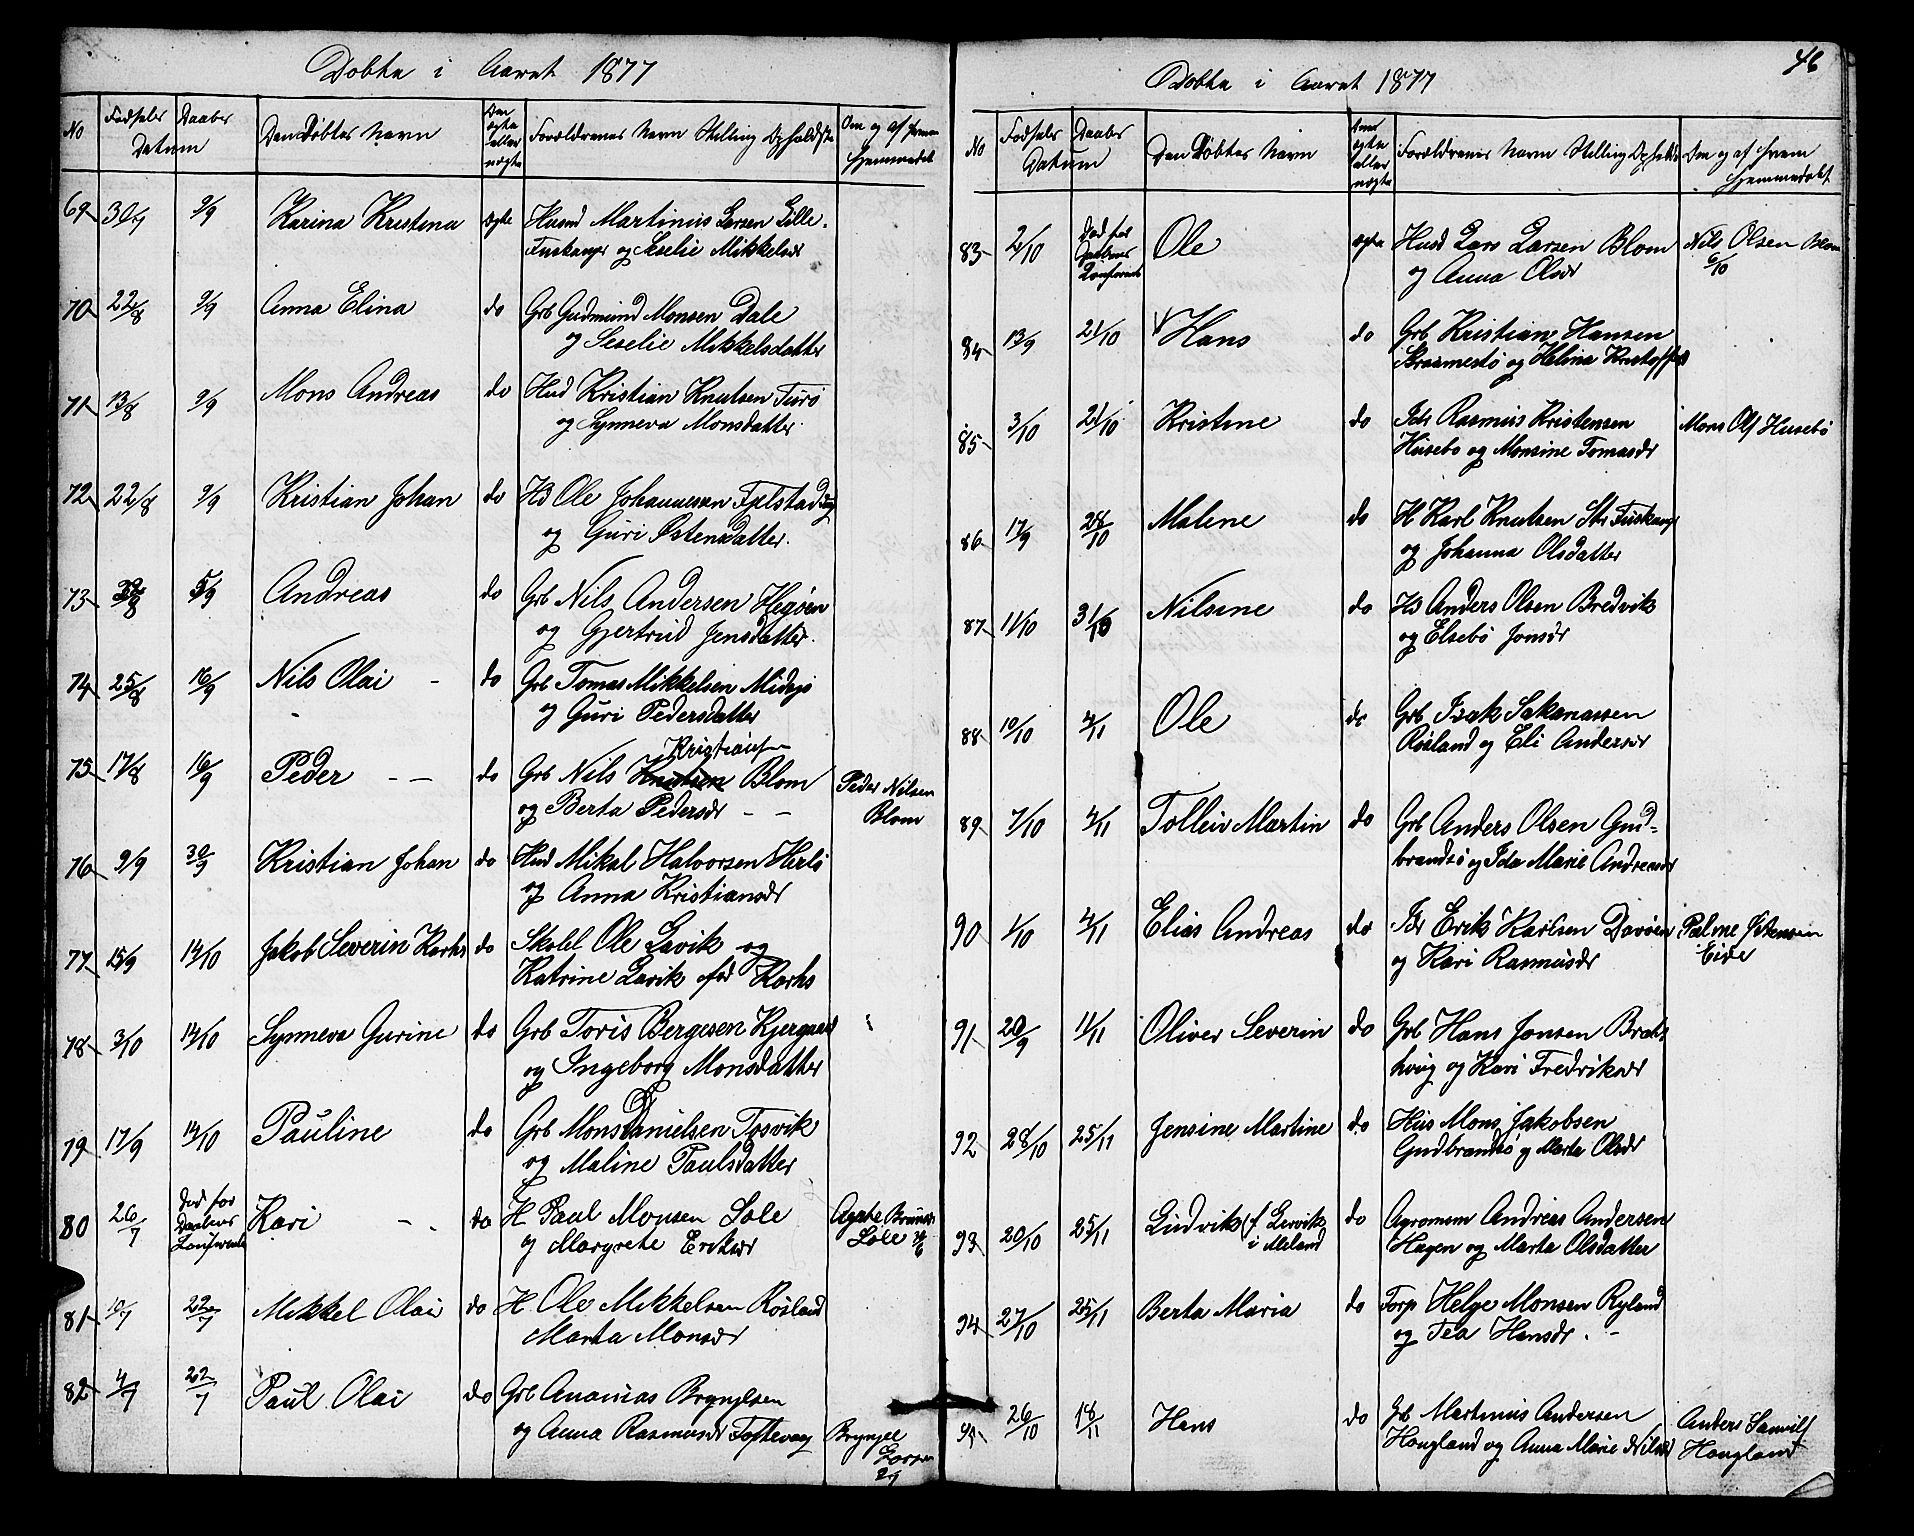 Døbte i Aaret 1877
No Fødsels Daabs Datum Den Døbtes Navn Den ægte eller uægte Forældrenes Navn Stilling Opholdst Om og af hvem hjemmedøbt
69 30/7 9/9 Karina Kristena ægte Husmd Martinus Larsen Lille
Fuskanger og Seselie Mikkelsdr
70 22/8 9/9 Anna Elina do Grb Gudmund Monsen Dale
og Seselie Mikkelsdatter
71 13/8 9/9 Mons Andreas do Hud Kristian Knutsen Turø
og Synneva Monsdatter
72 22/8 9/9 Kristian Johan do Hd Ole Johannesen Fjelstad
og Guri Østensdatter.
73 5/9 Andreas do Grb Nils Andersen Hegøen
og Gjertrud Jensdatter.
74 25/8 16/9 Nils Olai do Grb Tomas Mikkelsen Midsjø
og Guri Pedersdatter
Kristians
75 17/8 16/9 Peder do Grb Nils Knutsen Blom Peder Nilsen
og Berta Pedersdr Blom
76 9/9 30/9 Kristian Johan do Hud Mikal Halvorsen Herlø
og Anna Kristiansdr
77 15/9 14/10 Jakob Severin Korhs do Skoll Ole Lavik og
Katrine Lavik fød Korhs
78 3/10 14/10 Synneva Gurine do Grb Toris Bergesen Kjergaard
og Ingeborg Monsdatter
79 17/9 14/10 Pauline do Grb Mons Danielsen Tosvik
og Maline Paulsdatter
80 26/7 Død før Daabens Kari do H Paul Monsen Lole Agate
og Margrete Eriksdr Lole
81 10/7 22/7 Mikkel Olai do H Ole Mikkelsen Røsland
Marta Monsdr
82 4/7 22/7 Paul Olai do Grb Ananias Brynjelsen
og Anna Rasmusdr Toftevaag Brynjel
46
Døbte i Aaret 1877
No Fødsels Daabs Datum Den Døbtes Navn Den ægte eller uægte Forældrenes Navn Stilling Opholds Om og af hvem hjemmedøbt
83 2/10 Død før Daabens Ole ægte Husd Lars Larsen Blom Nils Olsen Blom
og Anna Olsdr 6/10
84 13/9 21/10 Hans do Grb Kristian Hansen
og Helina
85 3/10 21/10 Kristine do Rasmus Kristensen Mons Ols Husebø
Husebø og Monsine Tomasdr
86 17/9 28/10 Malene do H Karl Knutsen Str Fuskang
og Johanna Olsdatter
87 11/10 31/10 Nilsine do Hd Anders Olsen Bredvik
og Elsebø Jonsdr
88 10/10 4/11 Ole do Grb Isak Sakariassen
Røsland og Eli Andersdr
89 7/10 4/11 Tolleiv Martin do Grb Anders Olsen Gud-
brandsø og Ida Marie Andreasdr
90 1/10 4/11 Elias Andreas do Br Erik Karlsen Davøen Palne
og Kari Rasmusdr Eide
91 20/9 11/11 Oliver Severin do Grb Hans Jonsen Brat
hvig og Kari Fredriksdr
92 28/10 25/11 Jensine Martine do Hus Mons Jakobsen
Gudbrandsø og Marta Olsdr
93 20/10 25/11 Ludvik (f. Lervik do Agronom Andreas Andersen
i Meland Hagen og Marta Olsdatter
94 27/10 25/11 Berta Maria do Torp Helge Monsen Ryland
og Tea Hansdr.
95 26/10 18/11 Hans do Grb Martinus Andersen Anders
Hougland og Anna Marie Nilsdr Hougland